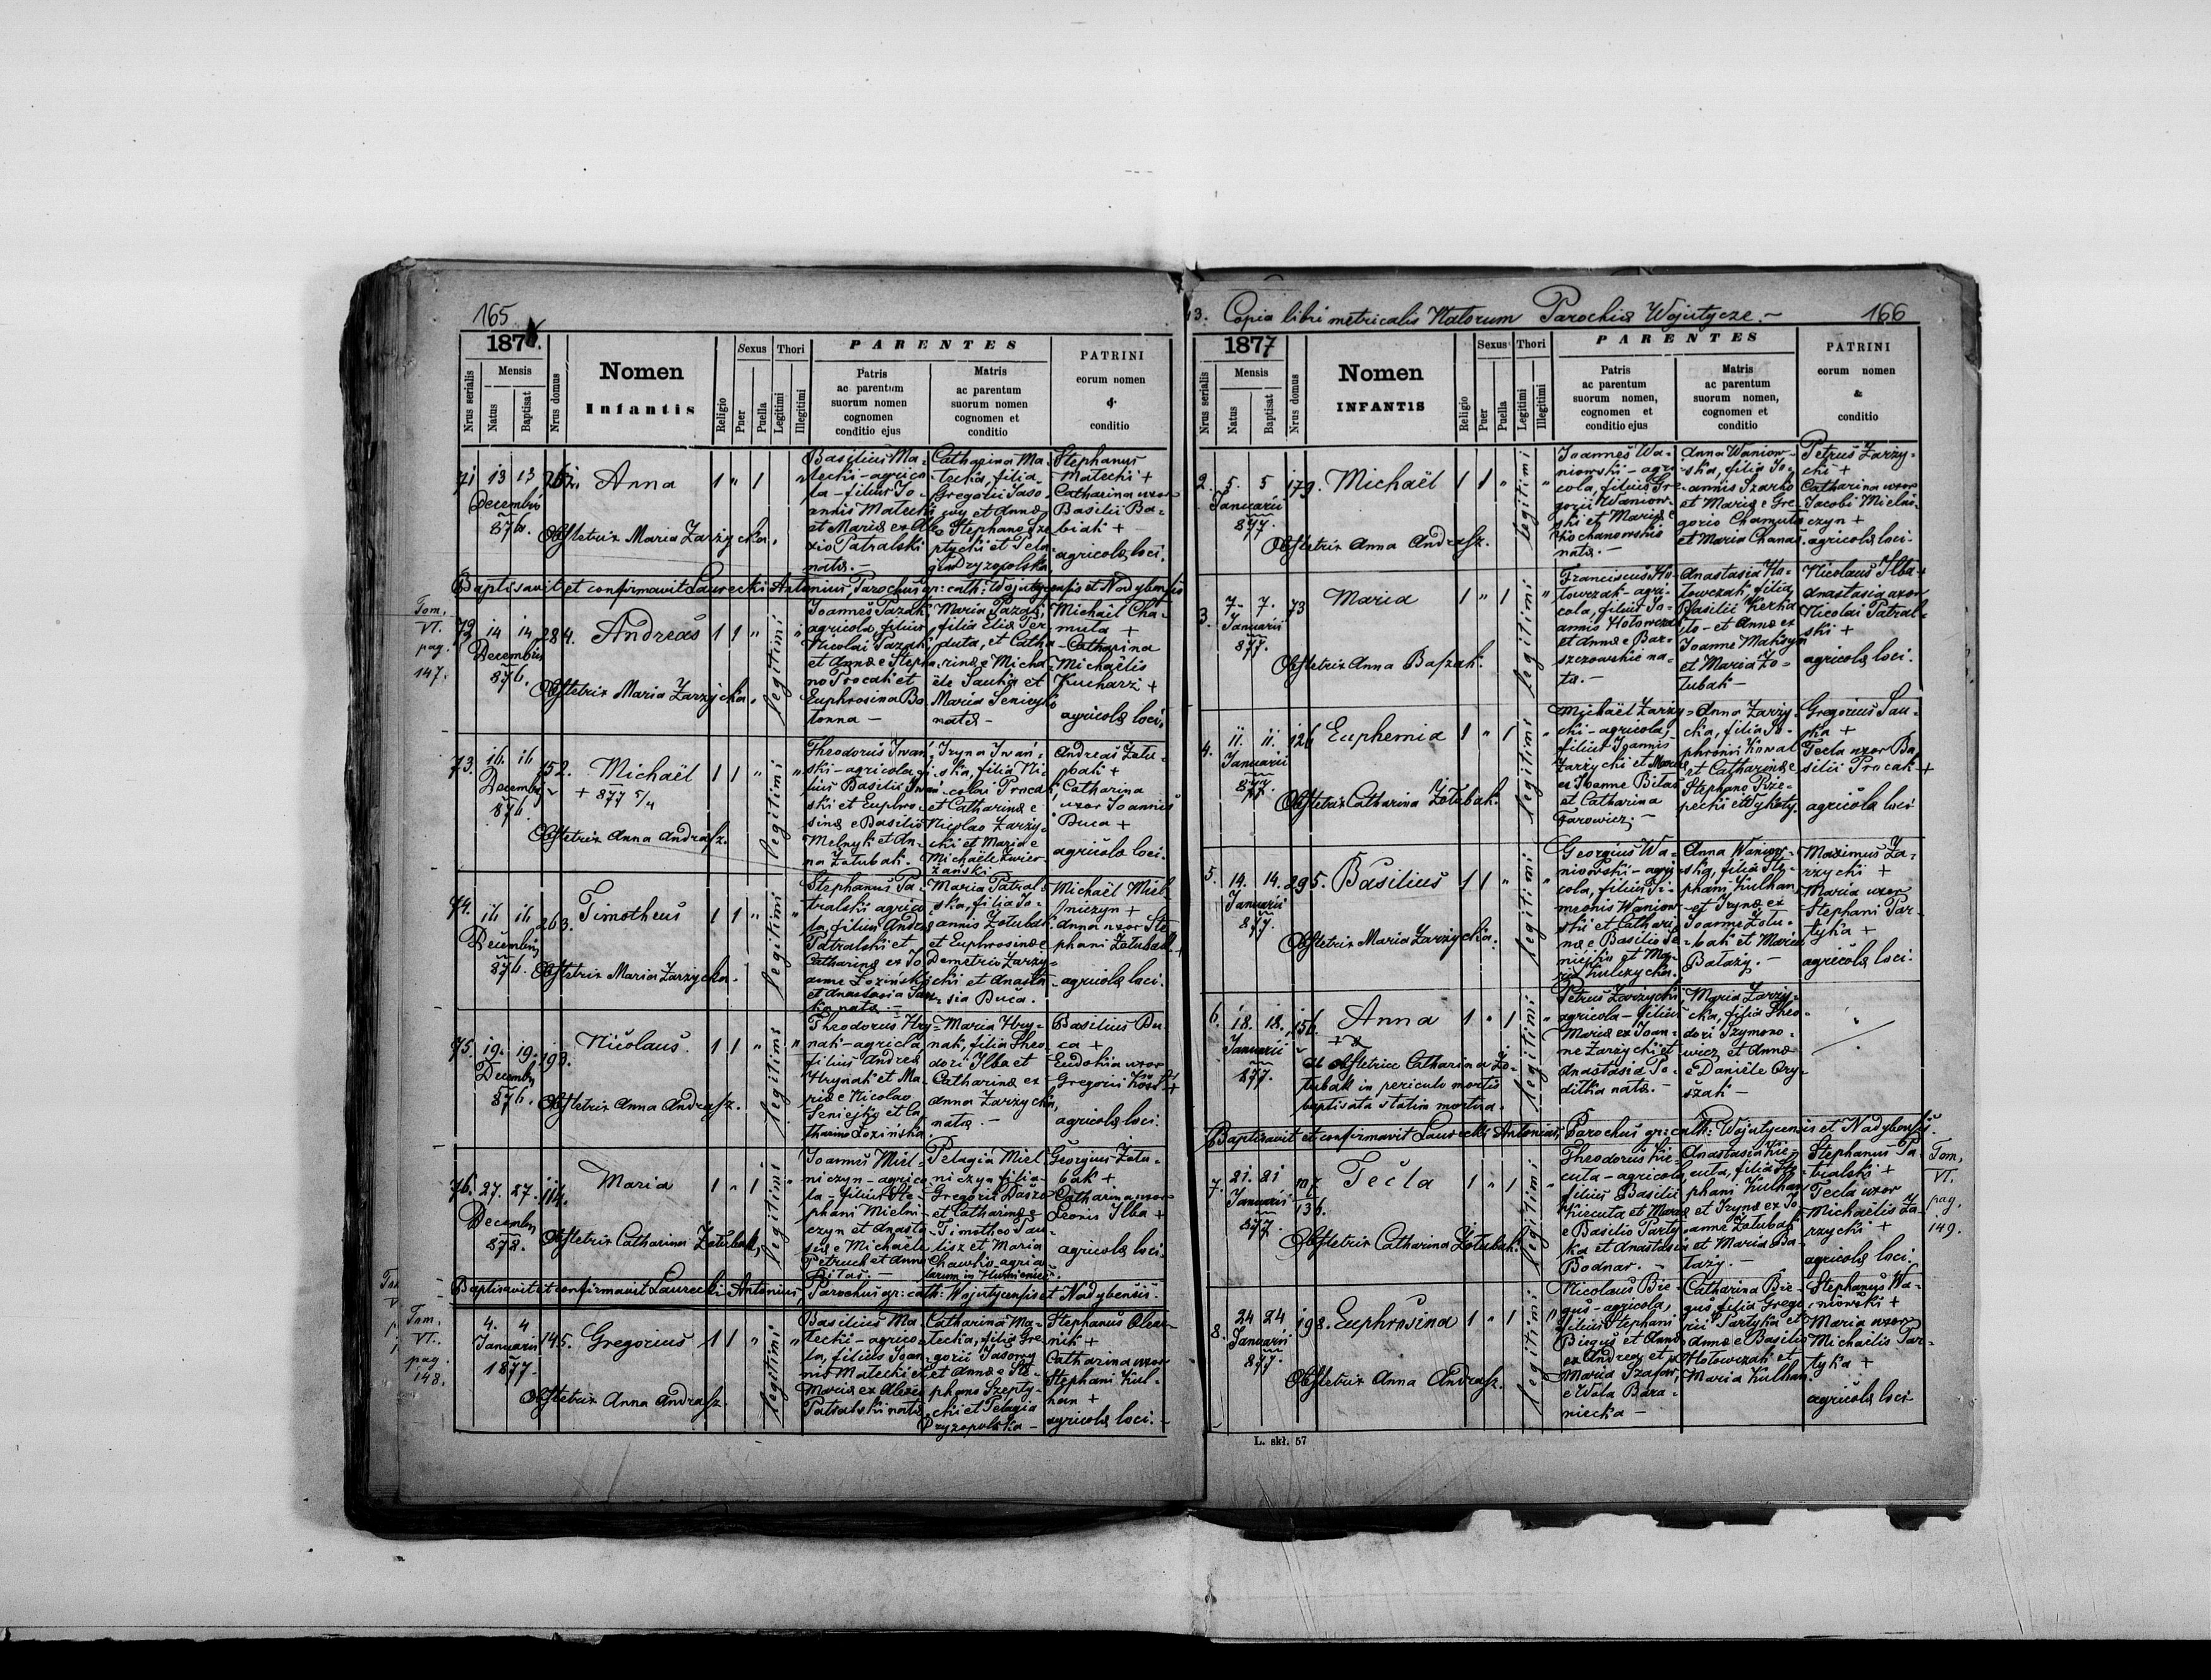 165
187
Nrus serialis
Mensis
Natus
Baptisat
Nrus domus
Nomen
Infantis
Religio
Sexus
Puer
Puella
Thori
Legitimi
Illegitimi
PARENTES
Patris
ac parentum
suorum nomen
cognomen
conditio ejus
Matris
ac parentum
suorum nomen
cognomen et
conditio
PATRINI
eorum nomen
&
conditio
71 13 13 Anna 1 " 1
Decembris
876.
Obstetrix Maria Zarzycka.
Basilius Ma-
tecki - agrico
la - filius Jo-
annis Matecki
et Mariæ ex Ale
xio Patralski
natæ. -
Catharina Ma-
tecka, filia
Gregorii Jaso-
wy et Annæ
e Stephano Sze
ptycki et Pela
gia Pryzopolska
Stephanus
Matecki +
Catharina uxor
Basilii Ba-
biak +
agricolæ loci.
Baptisavit et confirmavit Laurecki Antonius, Parochus gr: cath: Wojutycensis et Nadybensis
Tom.
VI.
pag.
147.
72 14 14 284. Andreas 1 1 "
Decembris
876.
Obstetrix Maria Zarzycka.
legitimi
Joannes Pazak
agricola, filius
Nicolai Pazak
et Annæ e Stepha
no Procak et
Euphrosina Bo
tonna -
Maria Pazak,
filia Eliæ Per
duta, et Catha
rinæ e Micha
ële Sauka et
Maria Seniejko
natæ -
Michaël Cha-
muta +
Catharina
Michaëlis
Kucharz +
agricolæ loci.
73. 16 16 152. Michaël 1 1 " "
Decembris
876.
+ 877 5/4
Obstetrix Anna Andrasz.
legitimi
Theodorus Iwań
ski - agricola fi
lius Basilii Iwań
ski et Euphro-
sinæ e Basilio
Melnyk et An-
na Zotubak.
Iryna Iwań-
ska, filia Ni-
colai Procak
et Catharinæ e
Nicolao Zarzy-
cki et Maria e
Michaële Zwier-
żański
Andreas Zotu-
bak +
Catharina
uxor Joannis
Buca +
agricolæ loci.
74. 16 16 263. Timotheus 1 1 " "
Decembris
876.
Obstetrix Maria Zarzycka.
legitimi
Stephanus Pa-
tralski agrico
la, filius Andreæ
Patralski et
Catharinæ ex Jo
anne Łoziński
et Anastasia Sau
ka natæ. -
Maria Patral-
ska, filia Jo-
annis Zotubak
et Euphrosinæ e
Demetrio Zarzy-
cki et Anasta
sia Buca.
Michaël Miel-
niczyn +
Anna uxor Ste
phani Zotubak +
agricolæ loci.
75. 19. 19. 193. Nicolaus. 1 1 " "
Decembris
876.
Obstetrix Anna Andrasz.
legitimi
Theodorus Hry-
nak - agricola
filius Andreæ
Hrynak et Ma-
riæ e Nicolao
Seniejko et Ca
tharina Łozińska
Maria Hry-
nak, filia Theo-
dori Ilba et
Catharinæ ex
Anna Zarzycka,
natæ. -
Basilius Bu
ca +
Eudokia uxor
Gregorii +
agricolæ loci.
76. 27. 27. 114. Maria 1 " 1
Decembris
878.
Obstetrix Catharina Zotubak.
legitimi
Joannes Miel-
niczyn - agrico
la - filius Ste-
phani Mielni-
czyn et Anasta
siæ e Michaële
Petruch et Anna
Bitas. -
Pelagia Miel
niczyn filia
Gregorii Daszo
et Catharinæ
Timotheo Pau
lisz et Maria
Chawko agrico
larum in Humieniec
Georgius Zotu-
bak +
Catharina uxor
Leonis Ilba +
agricolæ loci.
Baptisavit et confirmavit Laurecki Antonius, Parochus gr: cath: Wojutycensis et Nadybensis.
Tom.
VI.
pag.
148.
4. 4 145. Gregorius 1 1 " "
Januarii
1877.
Obstetrix Anna Andrasz.
legitimi
Basilius Ma-
tecki - agrico-
la, filius Joan-
nis Matecki et
Mariæ ex Alexio
Patralski natæ
Catharina Ma-
tecka, filia Gre
gorii Jasowy
et Annæ e Ste-
phano Szepty-
cki et Pelagia
Pryzopolska -
Stephanus Olea-
nik +
Catharina uxor
Stephani Kul-
han +
agricolæ loci. -
13. Copia libri metricalis Natorum Parochiæ Wojutycze. - 166
1877
Nrus serialis
Mensis
Natus
Baptisat
Nrus domus
Nomen
INFANTIS
Religio
Sexus
Puer
Puella
Thori
Legitimi
Illegitimi
PARENTES
Patris
ac parentum
suorum nomen,
cognomen et
conditio ejus
Matris
ac parentum
suorum nomen,
cognomen et
conditio
PATRINI
eorum nomen
&
conditio
2. 5. 5 179. Michaël 1 1 " "
Januarii
877.
Obstetrix Anna Andrasz.
legitimi
Joannes Wa-
niowski - agri-
cola, filius Gre
gorii Waniow-
ski et Mariæ e
Kochanowskio
natæ. -
Anna Waniow-
ska, filia Jo-
annis Szarko
et Mariæ e Gre
gorio Chamuta
et Maria Chanas.
Petrus Zarzy-
cki +
Catharina uxor
Jacobi Mielni-
czyn +
agricolæ loci.
3. 7. 7. 73 Maria 1 " 1 "
Januarii
877.
Obstetrix Anna Baszak.
legitimi
Franciscus Ho-
towczak - agri-
cola, filius Jo-
annis Hotowczak
et Annæ e Bar-
szczowskie na-
tæ. -
Anastasia Ho-
towczak, filia
Basilii Kerka
to - et Annæ ex
Joanne Maksym
et Maria Zo-
tubak -
Nicolaus Ilba +
Anastasia uxor
Nicolai Patral-
ski +
agricolæ loci.
4. 11. 11. 126 Euphemia 1 " 1 "
Januarii
877.
Obstetrix Catharina Zotubak.
legitimi
Michaël Zarzy-
cki - agricola,
filius Joannis
Zarzycki et Mariæ
ex Joanne Bitas
et Catharina
Parowicz. -
Anna Zarzy-
cka, filia So-
phronii Kowal
et Catharinæ e
Stephano Prze-
pecki et Wykoty.
Gregorius Sau-
ka +
Tecla uxor Ba
silii Procak +
agricolæ loci
5. 14. 14. 295. Basilius 1 1 " "
Januarii
877.
Obstetrix Maria Zarzycka.
legitimi
Georgius Wa-
niowski - agri
cola, filius Si-
meonis Waniow-
ski et Cathari
næ e Basilio Se-
niejko et Ma-
ria Kulczycka.
Anna Waniow-
ska, filia Ste-
phani Kulhan
et Irynæ ex
Joanne Zotu-
bak et Maria
Batazy. -
Maximus Za-
rzycki +
Maria uxor
Stephani Par-
tyka +
agricolæ loci.
6. 18. 18. 156. Anna 1 " 1 "
Januarii
877.
Ab obstetrice Catharina Zo-
tubak in periculo mortis
baptisata statim mortua.
legitimi
Petrus Zarzycki,
agricola - filius
Mariæ ex Joan-
ne Zarzycki et
Anastasia Po-
ditka natæ. -
Maria Zarzy-
cka, filia Theo-
dori Szymono-
wicz et Annæ
e Daniële Ory-
szak -
Baptisavit et confirmavit Laurecki Antonius, Parochus gr: cath: Wojutycensis et Nadybensis.
7. 21. 21 Tecla 1 " 1 "
Januarii 136.
877.
Obstetrix Catharina Zotubak.
legitimi
Theodorus Kie-
cuta - agricola,
filius Basilii
Kiecuta et Mariæ
e Basilio Party-
ka et Anastasia
Bodnar. -
Anastasia Kie-
cuta, filia Ste-
phani Kulhan
et Irynæ ex Jo
anne Zotubak
et Maria Ba-
tazy. -
Stephanus Pa-
tralski +
Tecla uxor
Michaëlis Za-
rzycki +
agricolæ loci.
Tom.
VI.
pag.
149.
8. 24 24 198. Euphrosina 1 " 1 "
Januarii
877.
Obstetrix Anna Andrasz.
legitimi
Nicolaus Bie-
gus - agricola,
filius Stephani
Biegus et Annæ
ex Andrea et
Maria Szafar,
e Wola Bara-
niecka -
Catharina Bie-
gus filia Grego-
rii Partyka et
Annæ e Basilio
Hotowczak et
Maria Kulhan
Stephanus Wa-
niowski +
Maria uxor
Michaëlis Par-
tyka +
agricolæ loci
L. skł. 57